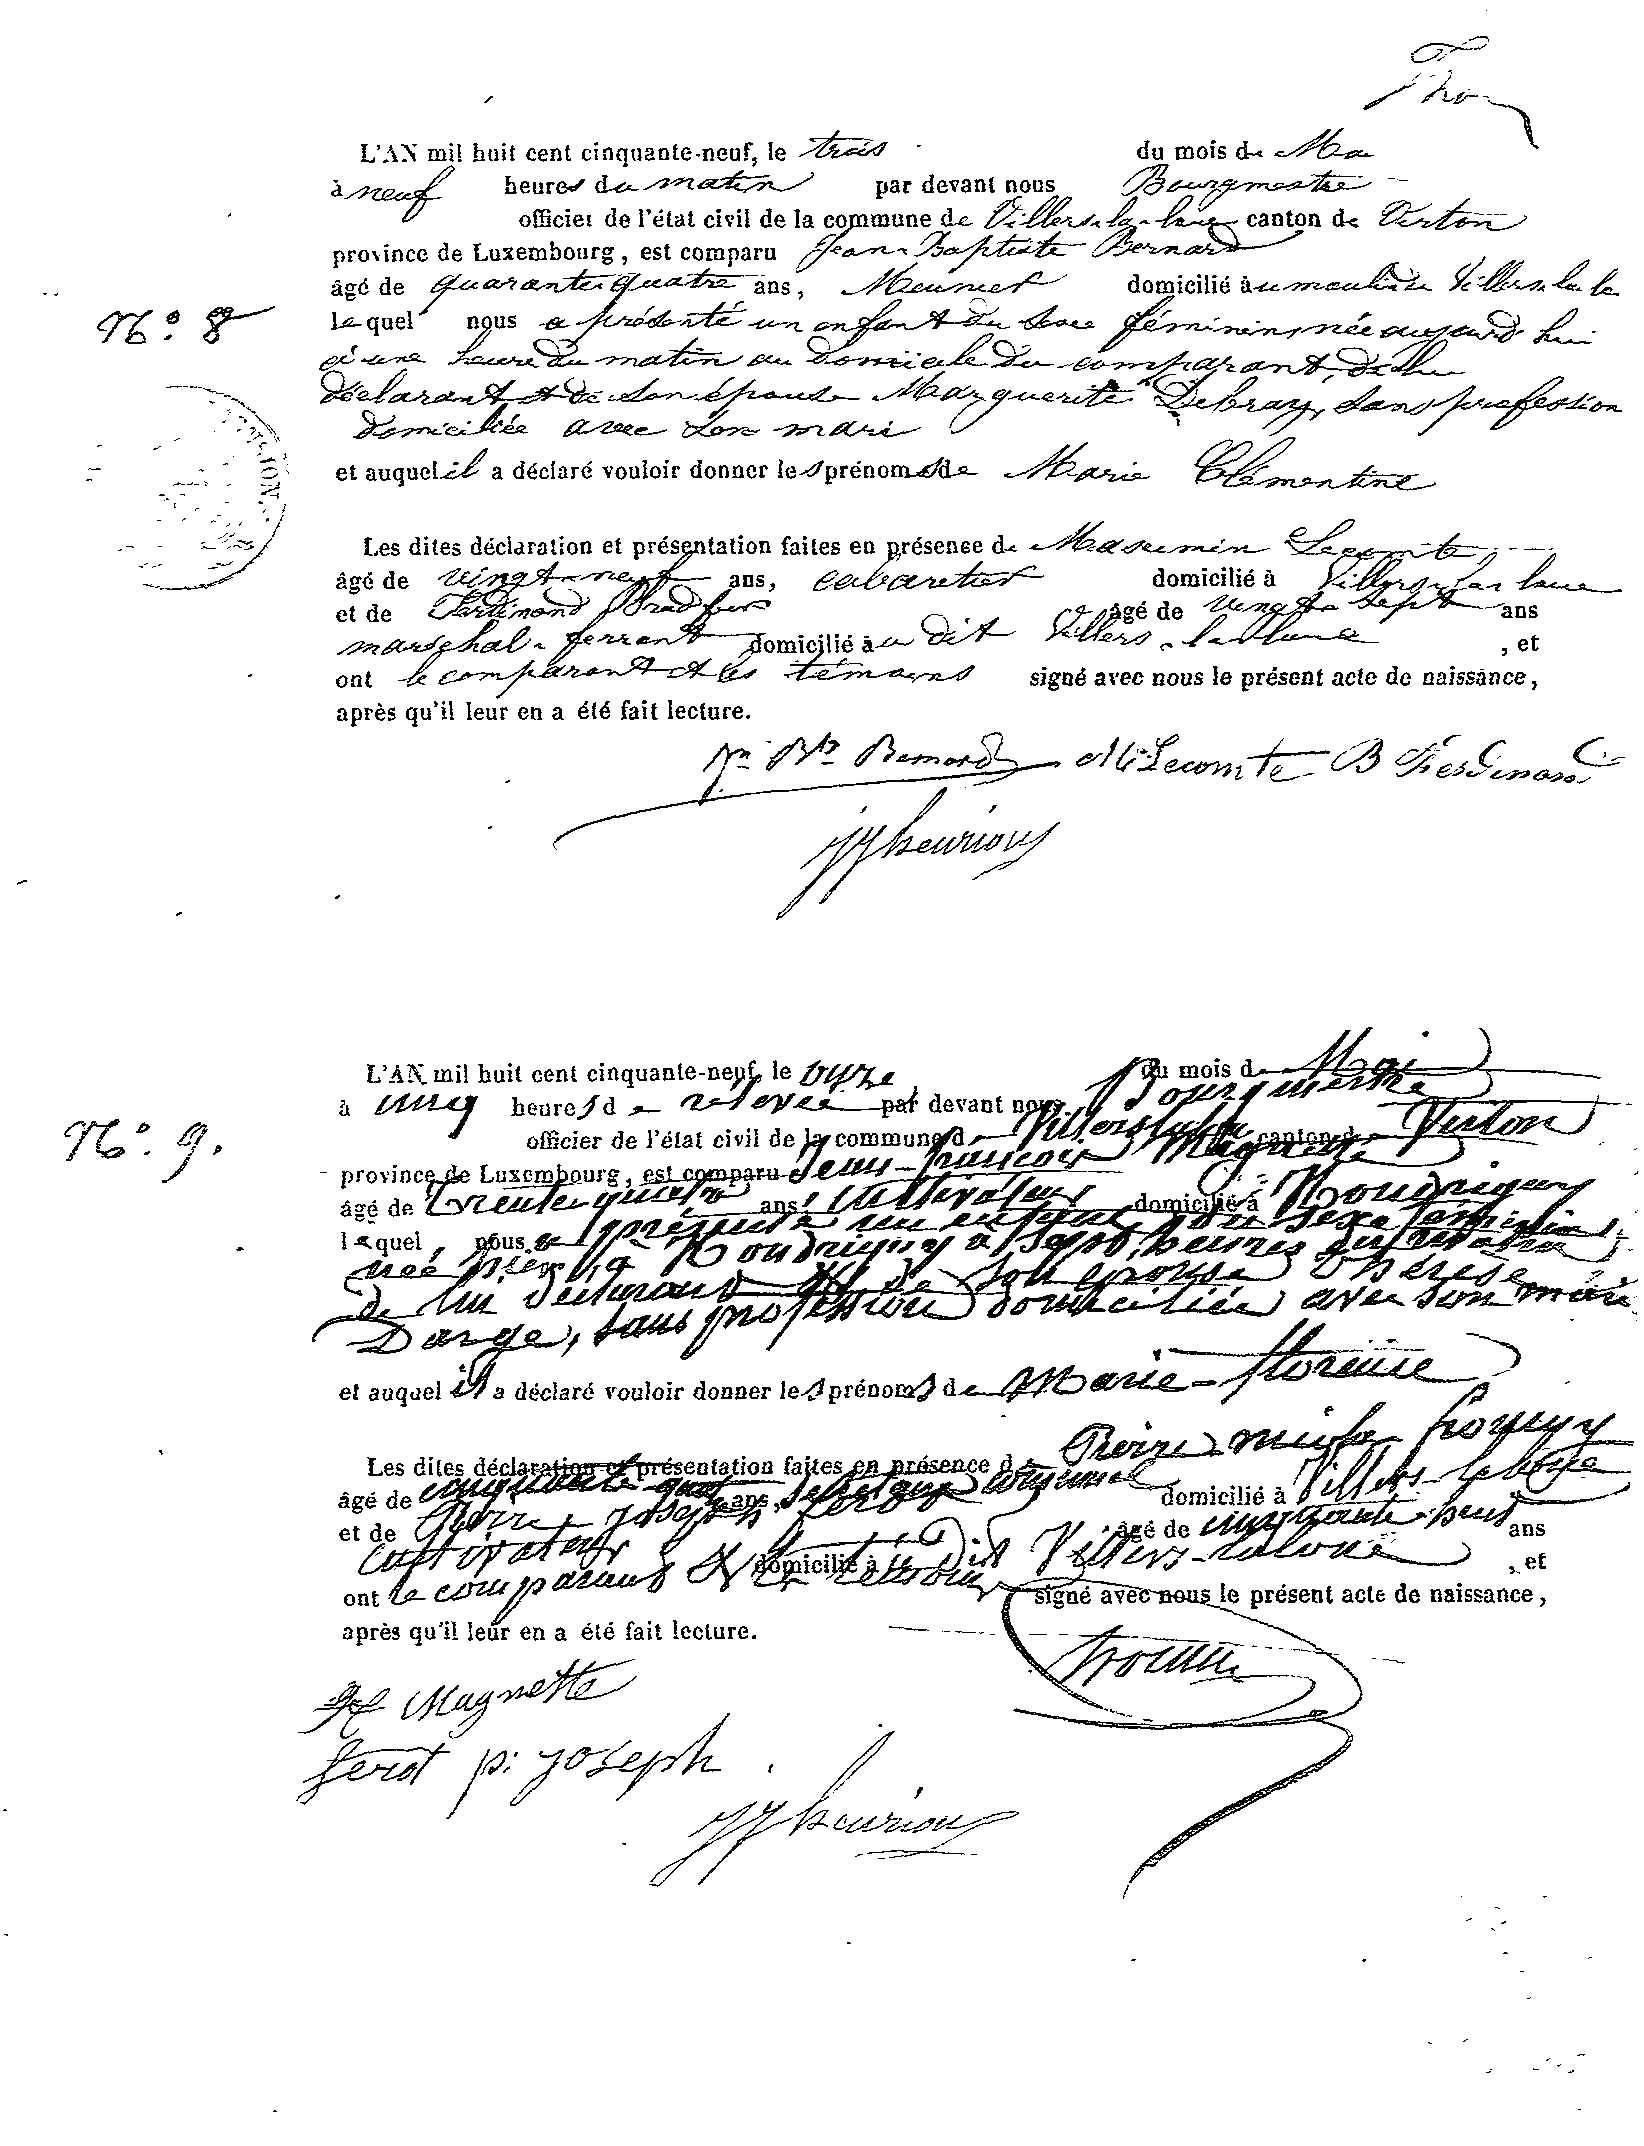 L'AN mil huit cent cinquante-neuf, le trois du mois de Ma
à neuf heures du matin par devant nous Bourgmestre
officier de l'état civil de la commune de Villers-la-loue canton de Virton
province de Luxembourg, est comparu Jean-Baptiste Bernard
âgé de quarante-quatre ans, Meunier domicilié au moulin de Villers-la-lo
N° 8
lequel nous a présenté un enfant du sexe féminin, née aujourd'hui
à une heure du matin au domicile du comparant, de lui
déclarant et de son épouse Marguerite Debray, sans profession
domiciliée avec son mari
et auquel il a déclaré vouloir donner les prénoms de Marie Clémentine
Les dites déclaration et présentation faites en présence de Lecomte
âgé de vingt-neuf ans, cabaretier domicilié à Villers-la-loue
et de Ferdinand âgé de vingt-sept ans
maréchal-ferrant domicilié au dit Villers-la-loue, et
ont le comparant et les témoins signé avec nous le présent acte de naissance,
après qu'il leur en a été fait lecture.
Jn Bte Bernard M. Lecomte B Ferdinand
L'AN mil huit cent cinquante-neuf, le onze du mois de Mai
à cinq heures de relevée par devant nous Bourgmestre
N° 9.
officier de l'état civil de la commune de Villers-la-loue canton de Virton
province de Luxembourg, est comparu Jean-françois Magnette
âgé de trente-quatre ans, cultivateur domicilié à Houdrigny
lequel, nous a présenté un enfant du sexe féminin,
née hier à Houdrigny à sept heures du matin
de lui déclarant et de son épouse Thérèse
Darge, sans profession domiciliée avec son mari
et auquel il a déclaré vouloir donner les prénoms de Marie-florence
Les dites déclaration et présentation faites en présence de Pierre
âgé de cinquante ans, secrétaire communal domicilié à Villers-la-loue
et de Pierre Joseph Ferot âgé de cinquante-neuf ans
cultivateur domicilié au dit Villers-la-loue, et
ont le comparant et les témoins signé avec nous le présent acte de naissance,
après qu'il leur en a été fait lecture.
Magnette
ferot p: joseph